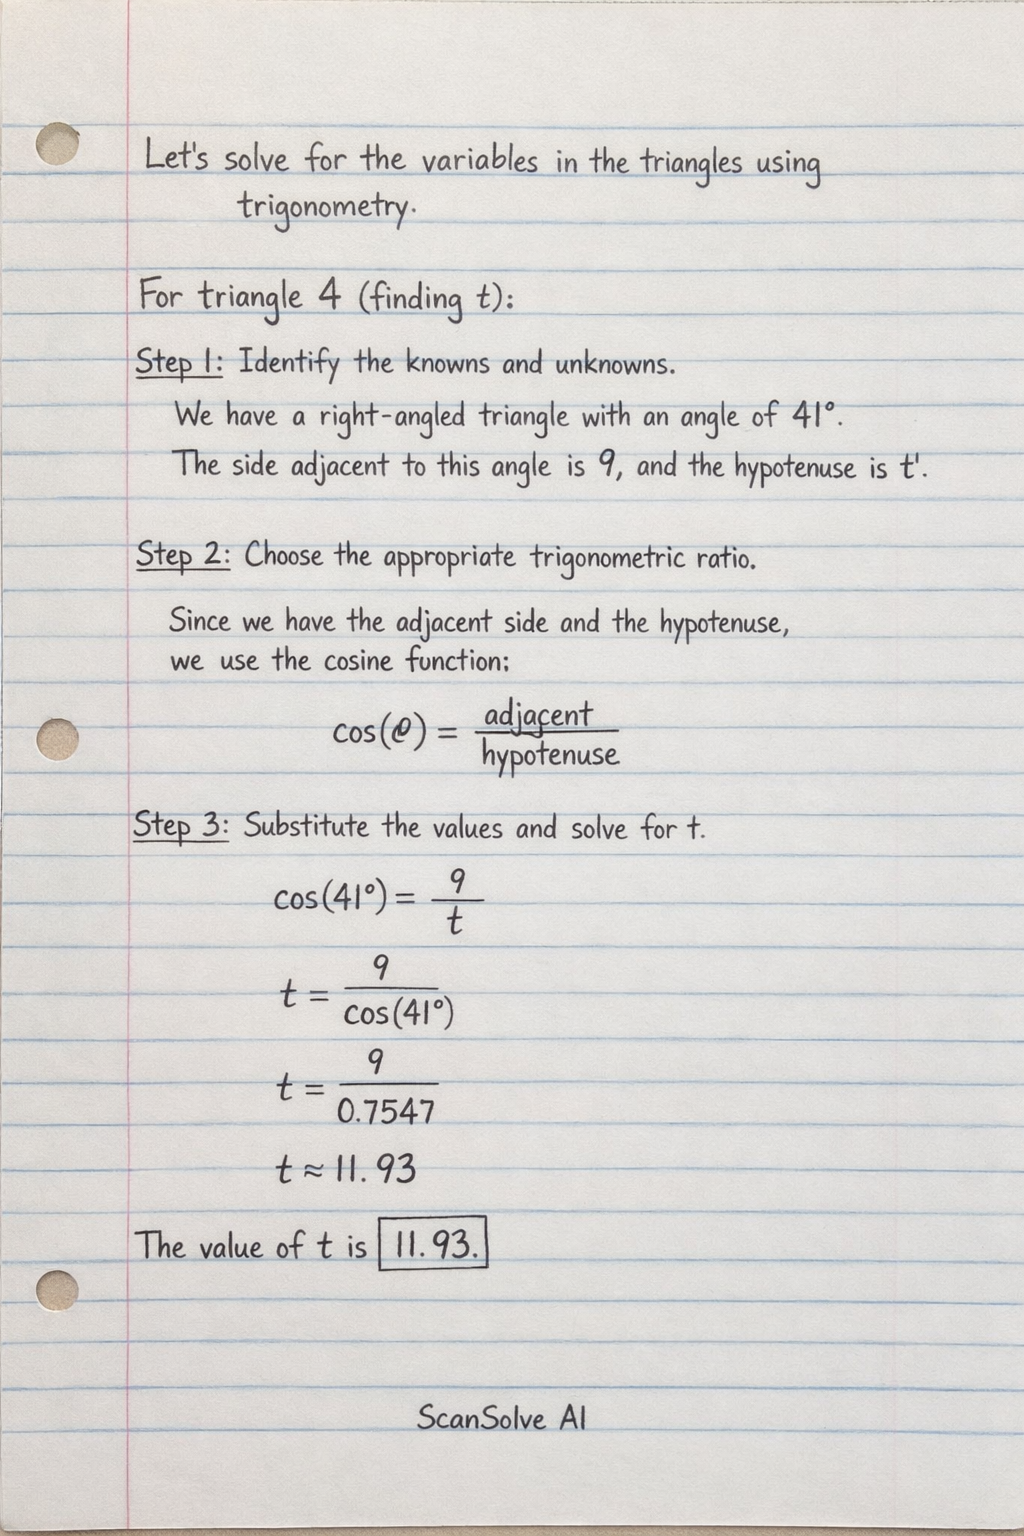 Let's solve for the variables in the triangles using
trigonometry.
For triangle 4 (finding t):
Step 1: Identify the knowns and unknowns.
We have a right-angled triangle with an angle of 41°.
The side adjacent to this angle is 9, and the hypotenuse is t'.
Step 2: Choose the appropriate trigonometric ratio.
Since we have the adjacent side and the hypotenuse,
we use the cosine function:
cos(θ) = adjacent / hypotenuse
Step 3: Substitute the values and solve for t.
cos(41°) = 9 / t
t = 9 / cos(41°)
t = 9 / 0.7547
t ≈ 11.93
The value of t is 11.93.
ScanSolve AI